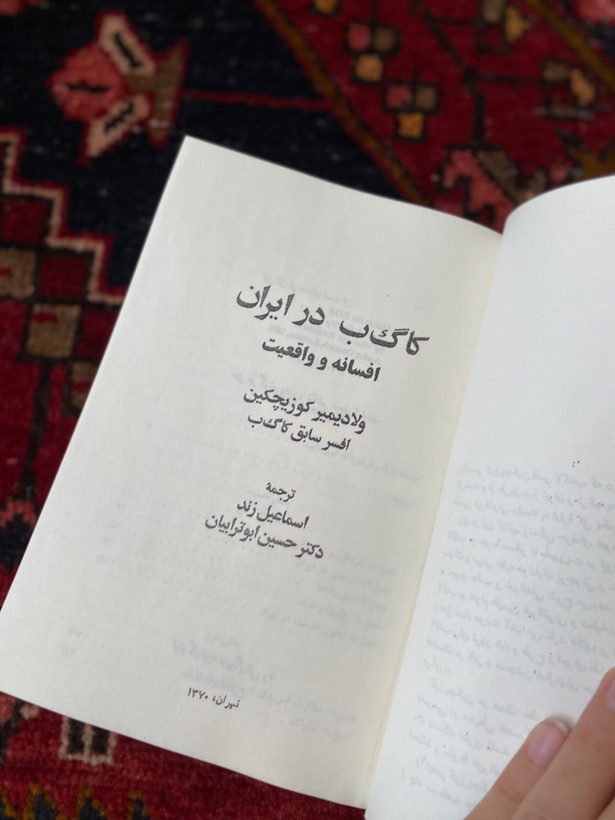 کا گ ب در ایران
افسانه و واقعیت
ولادیمیر کوزیچکین
افسر سابق کا گ ب
ترجمهٔ
اسماعیل زند
دکتر حسین ابوترابیان
تهران، ۱۳۷۰